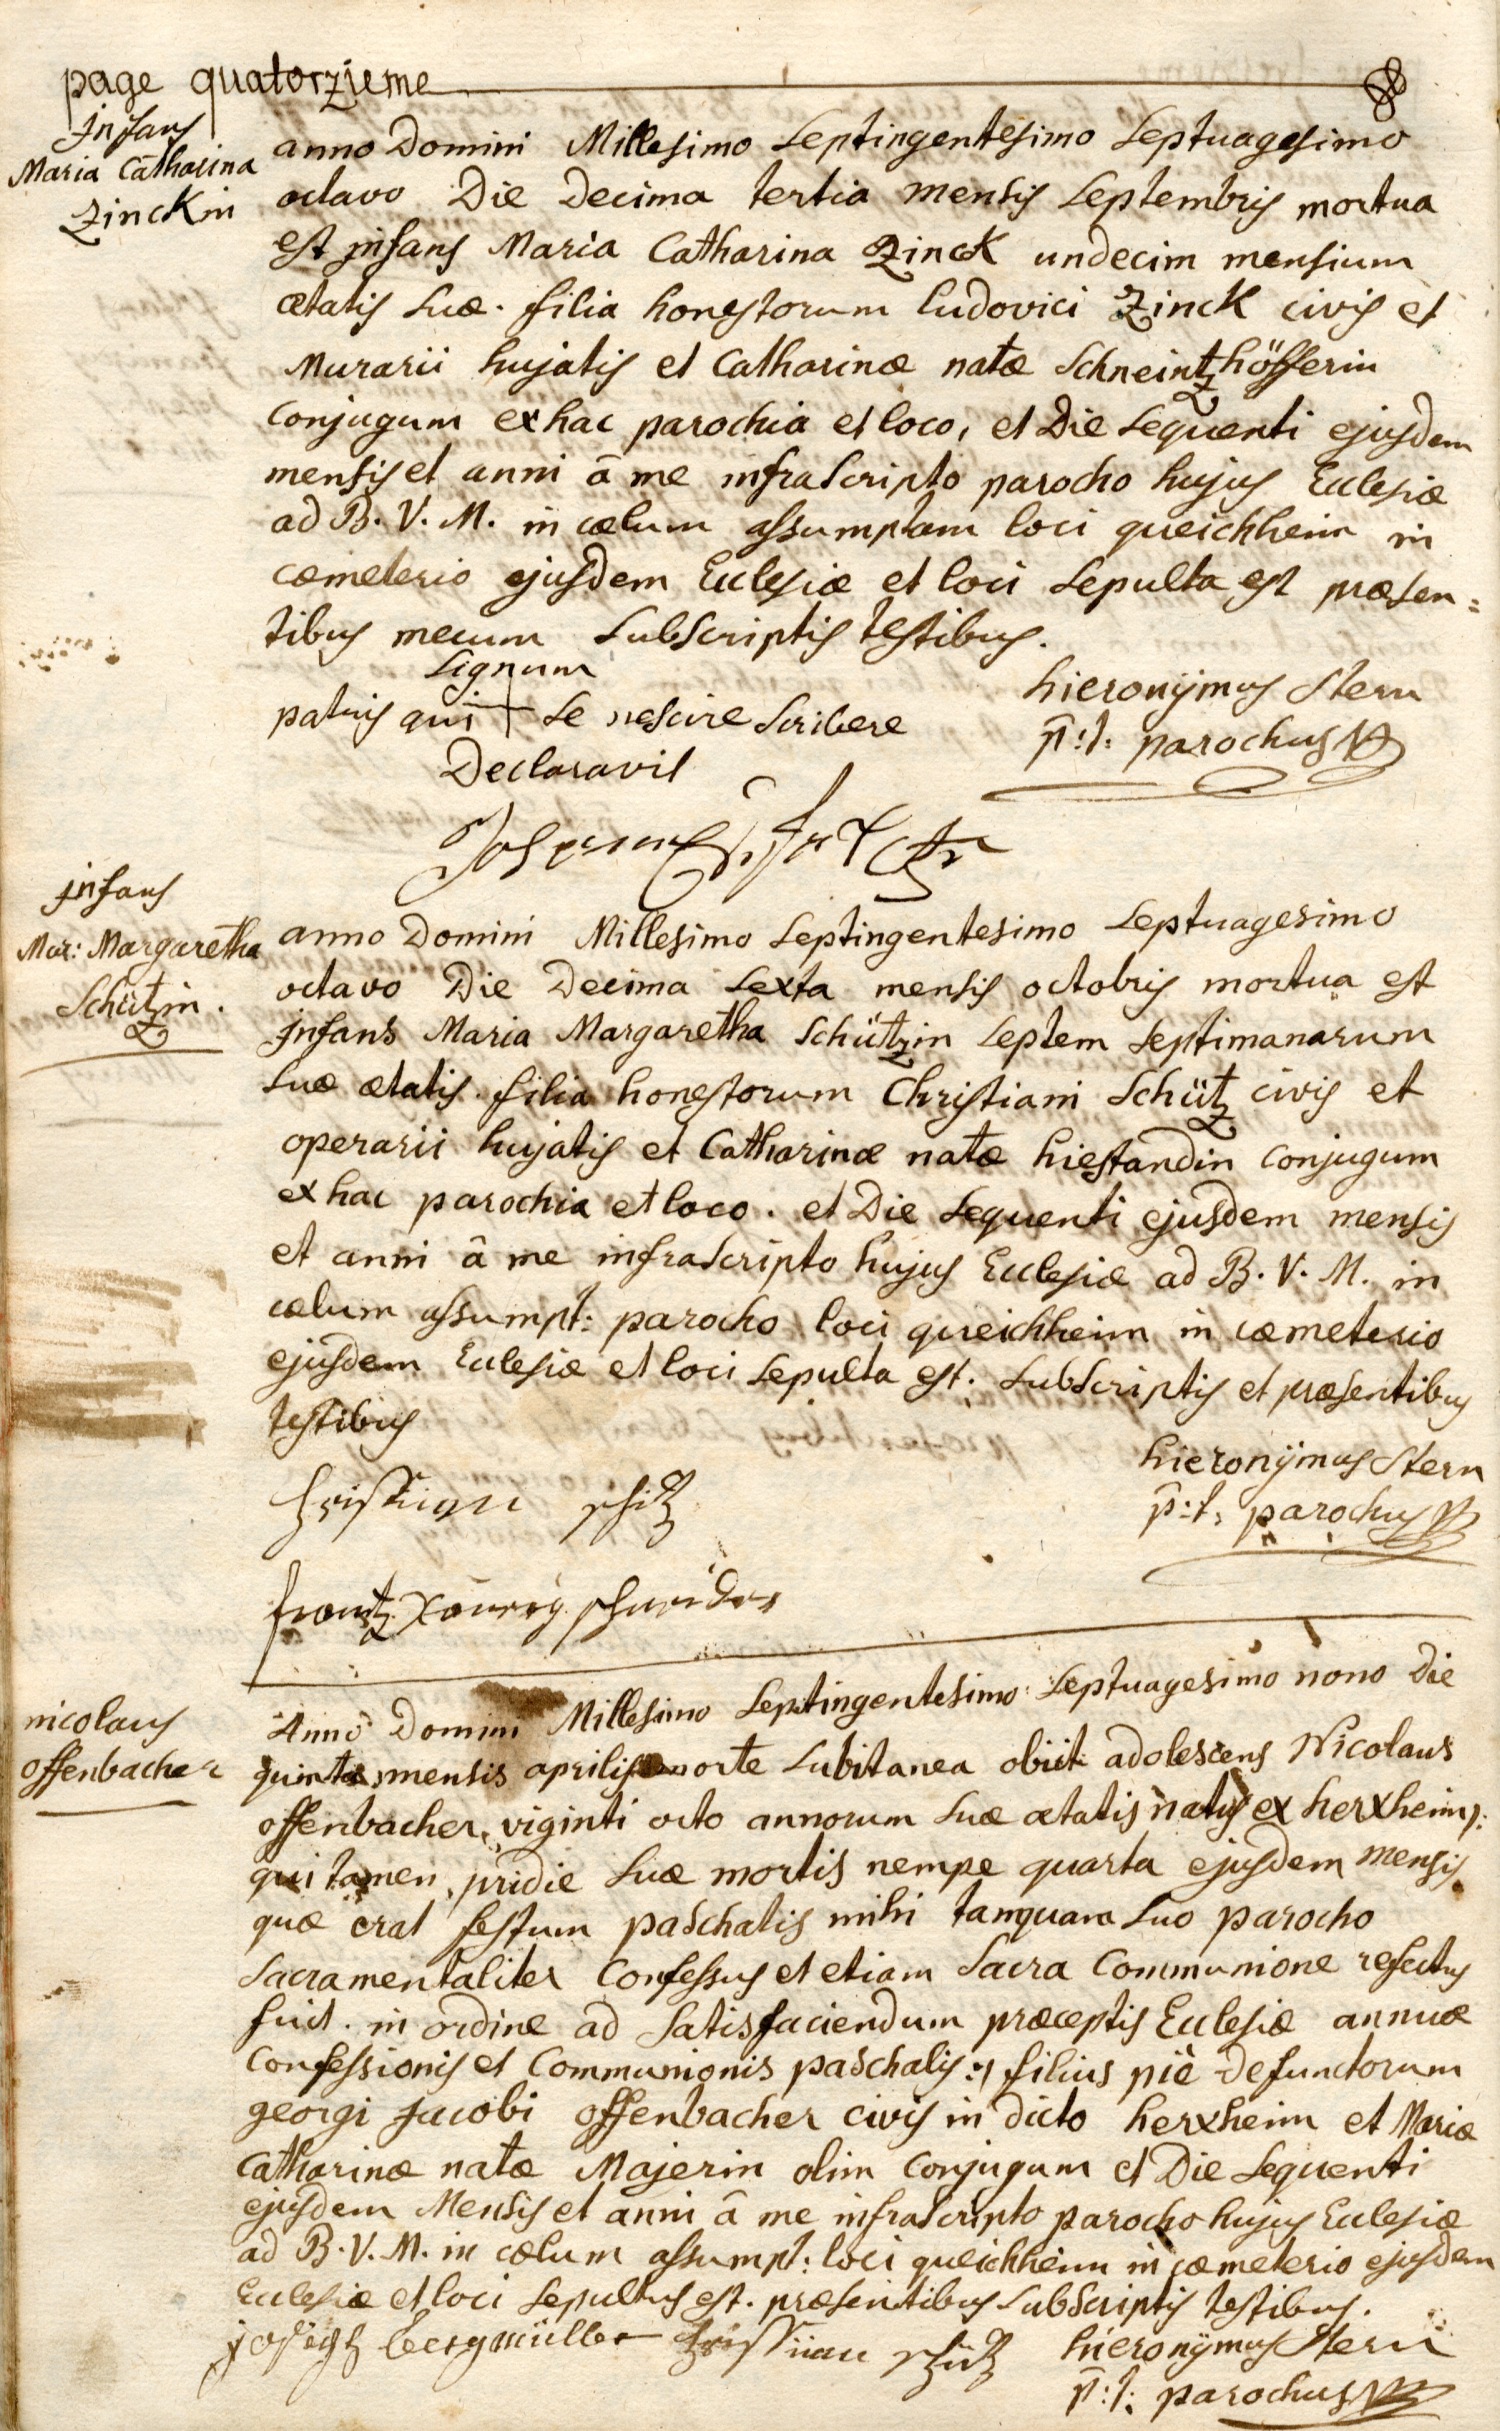 page quatorzieme
infans
Maria Catharina
Zinckin
anno Domini Millesimo Septingentesimo Septuagesimo
octavo Die Decima tertia mensis Septembris mortua
est infans Maria Catharina Zinck undecim mensium
ætatis suæ. filia honestorum ludovici Zinck civis et
Murarii hujatis et Catharinæ natæ Schneintzhöfferin
conjugum ex hac parochia et loco, et Die sequenti ejusdem
mensis et anni â me infrascripto parocho hujus Eclesiæ
ad B. V. M. in cælum assumptam loci queichheim in
cœmeterio ejusdem Eclesiæ et loci sepulta est præsen=
tibus mecum subscriptis testibus.
Signum
patris qui + se nescire scribere
Declaravit
hieronÿmus Stern
p:t: parochus
infans
Mar: Margaretha
Schützin.
anno Domini Millesimo Septingentesimo Septuagesimo
octavo Die Decima sexta mensis octobris mortua est
infans Maria Margaretha Schützin septem septimanarum
suæ ætatis. filia honestorum Christiani Schütz civis et
operarii hujatis et Catharinæ natæ hiestandin conjugum
ex hac parochia et loco. et Die sequenti ejusdem mensis
et anni â me infrascripto hujus Eclesiæ ad B. V. M. in
cælum assumpt: parocho loci queichheim in cœmeterio
ejusdem Eclesiæ et loci sepulta est. subscriptis et præsentibus
testibus
hieronÿmus Stern
p:t: parochus
schitz
frantz Xavery schneider
nicolaus
offenbacher
Anno Domini Millesimo Septingentesimo Septuagesimo nono Die
quinta mensis aprilis morte subitanea obiit adolescens Nicolaus
offenbacher, viginti octo annorum suæ ætatis natus ex herxheim:
qui tamen pridie suæ mortis nempe quarta ejusdem mensis
quæ erat festum paschatis mihi tanquam suo parocho
sacramentaliter confessus et etiam sacra communione refectus
fuit. in ordine ad satisfaciendum præceptis Eclesiæ annuæ
confessionis et communionis paschalis :/ filius piè defunctorum
georgi jacobi offenbacher civis in dicto herxheim et Mariæ
catharinæ natæ Majerin olim conjugum et Die sequenti
ejusdem Mensis et anni â me infrascripto parocho hujus Eclesiæ
ad B. V. M. in cælum assumpt: loci queichheim in cœmeterio ejusdem
Eclesiæ et loci sepultus est. præsentibus subscriptis testibus.
joseph bergmüller schütz
hieronÿmus Stern
p:t: parochus